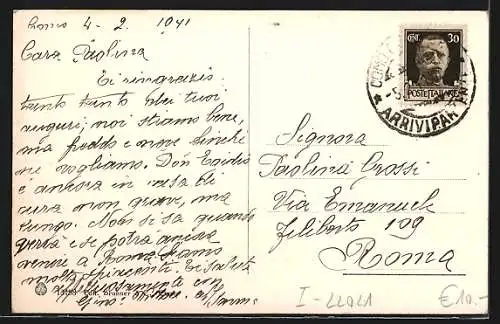 4 - 2 1941
Cara Paolina
Ti ringrazio
tanto tanto dei tuoi
auguri; noi stiamo bene,
ma freddo e neve finchè
ne vogliamo. Don Egidio
è ancora in casa di
cura non grave, ma
lunga. Non si sa quando
verrà e se potrà ancora
venire a Roma. Siamo
molto spiacenti. Ti saluta
affettuosamente
CENT. 30
POSTE ITALIANE
ARRIVI PAR
Signora
Paolina Grossi
Via Emanuele
Filiberto 109
Roma
I-22021
€10.-